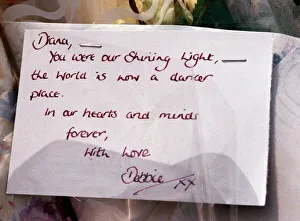 Diana, —
You were our Shining Light, —
the world is now a darker
place.
In our hearts and minds
forever,
With Love
Debbie xx